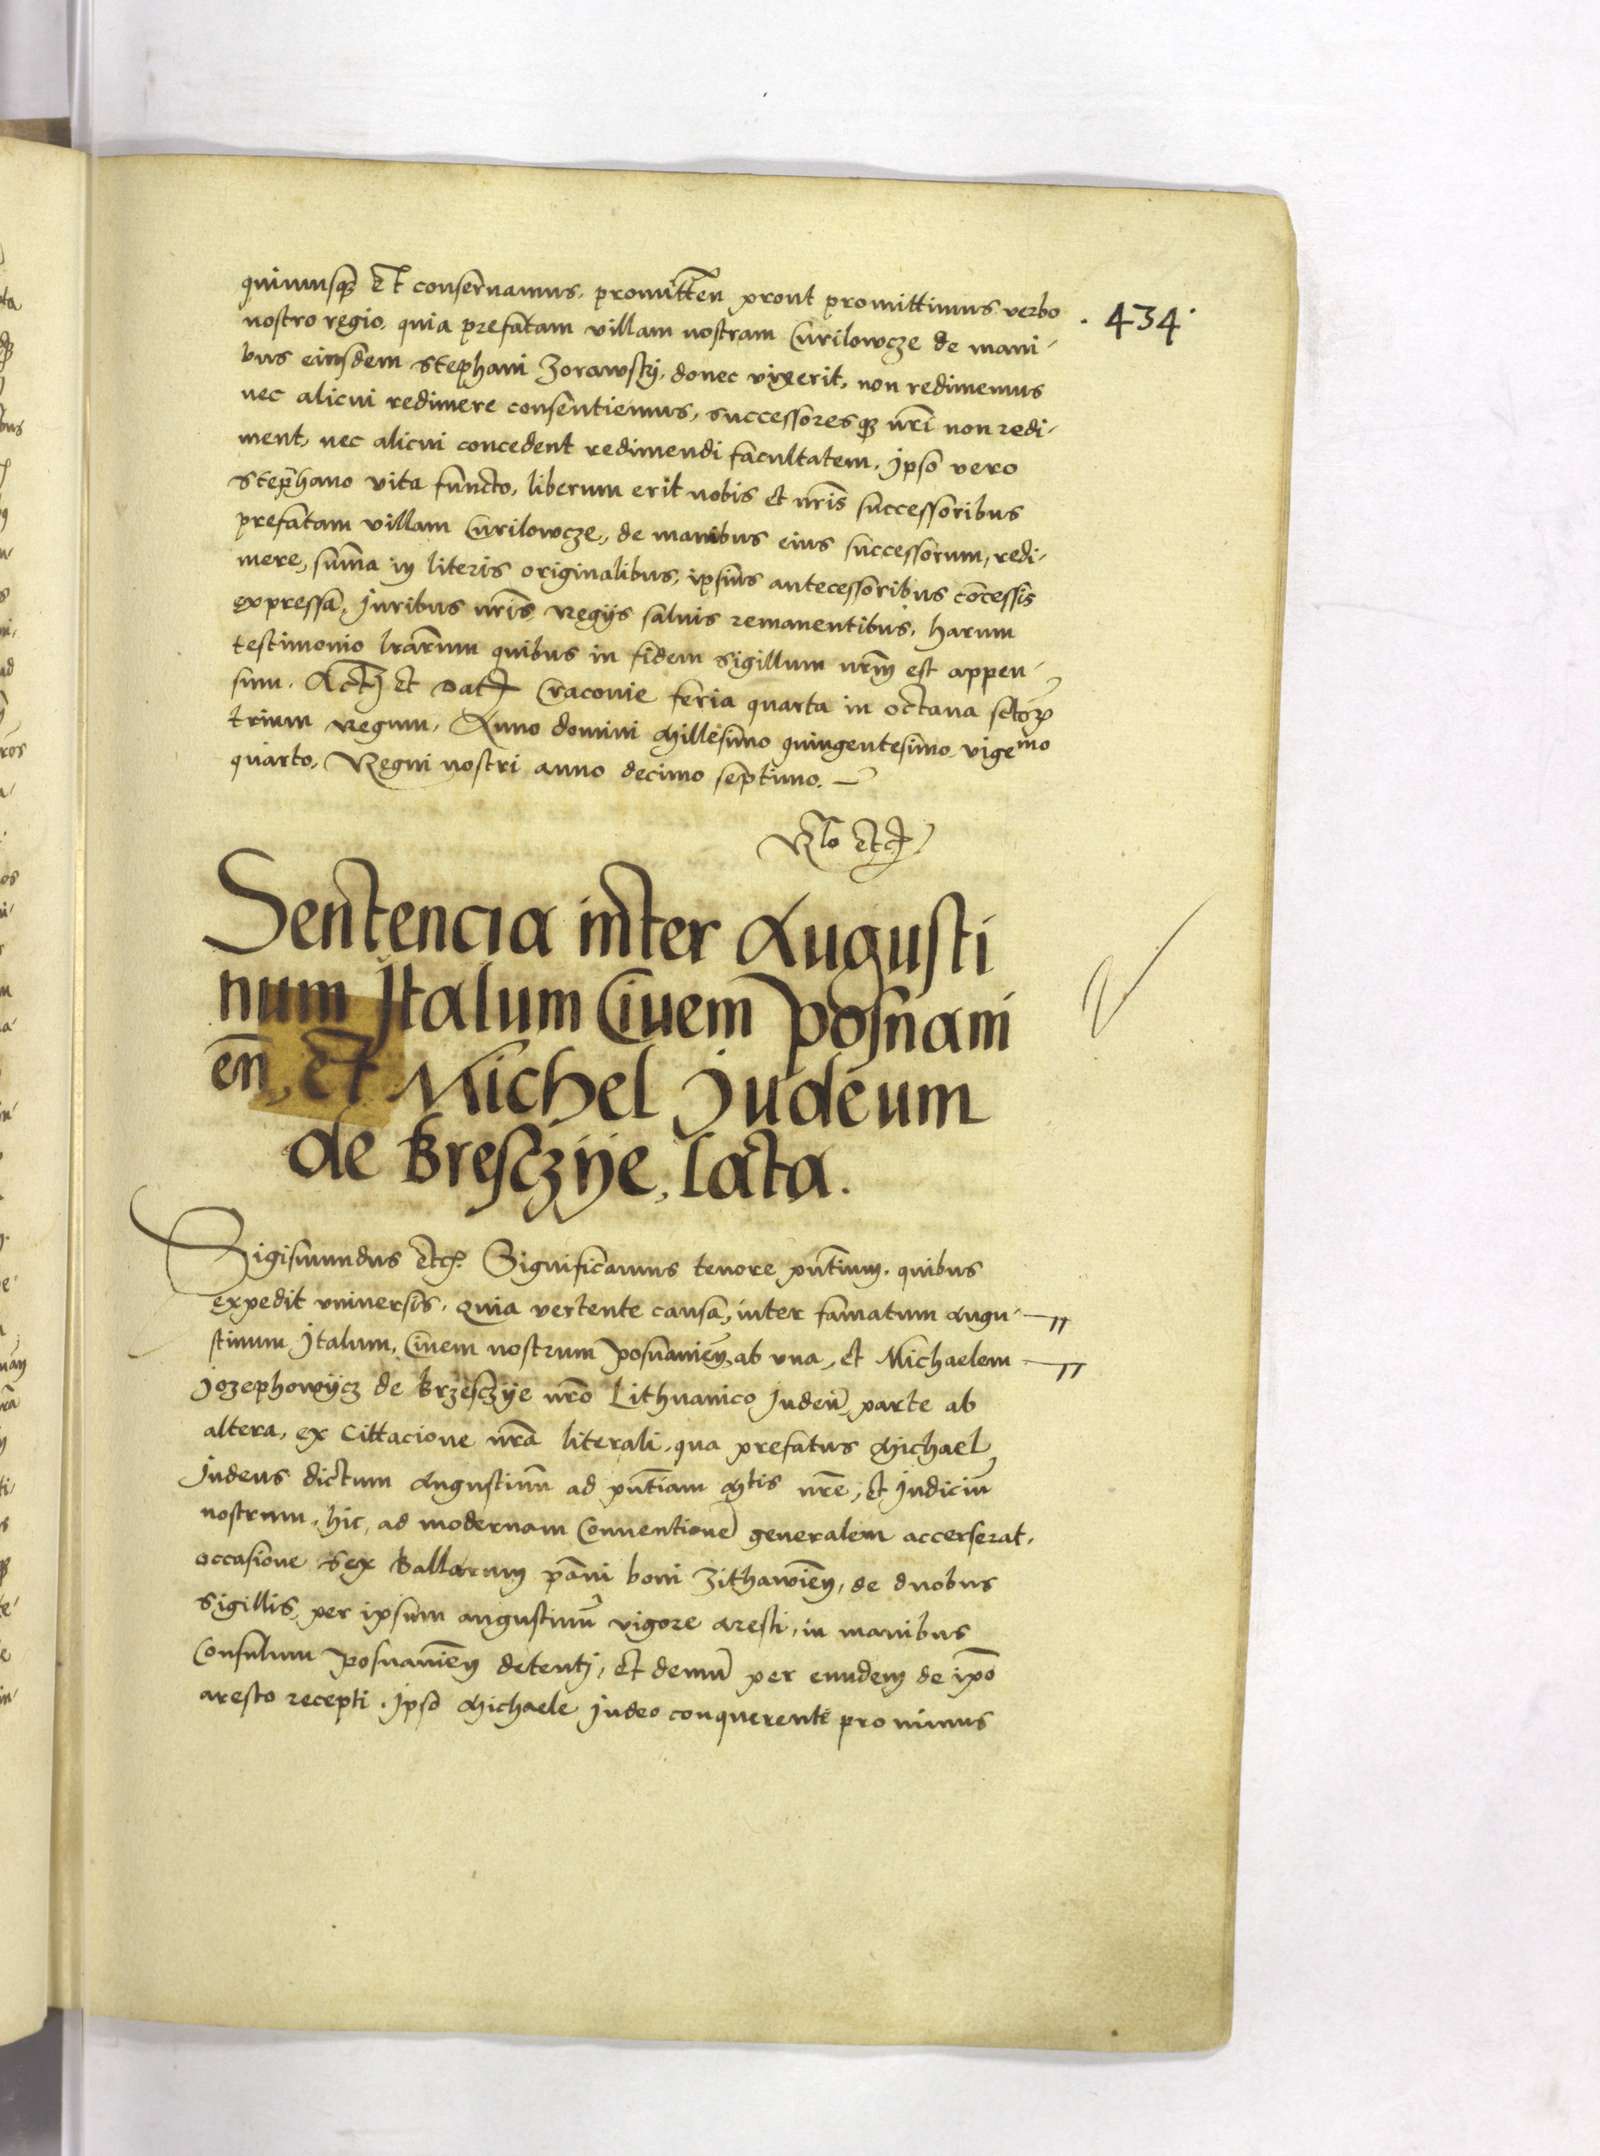 quimusq3 Et conservamus. promitten̄ prout promittimus verbo
. 434.
nostro regio. quia prefatam villam nostram Curilowcze de mani-
bus eiusdem Stephani Zorawskij. donec vixerit, non redimemus
nec alicui redimere consentiemus, successoresq3 nr̄i non redi-
ment, nec alicui concedent redimendi facultatem. Ipso vero
Stephano vita functo, liberum erit nobis et nr̄is successoribus
prefatam villam Curilowcze, de manibus eius successorum, redi-
mere, sum̄a in literis originalibus, ipsius antecessoribus cōcessis
expressa, Iuribus nr̄is Regijs salvis remanentibus, harum
testimonio lrārum quibus in fidem sigillum nrm̄ est appen-
sum. Act̄ et Dat̄ Cracovie feria quarta in octava sctōr̄
trium Regum, Anno domini Millesimo quingentesimo vigemo
quarto, Regni nostri anno decimo septimo.
Rlō etc̄
Sentencia inter Augusti
num Italum Civem Posnani
en̄, Et Michel Judeum
de Bresczije, lata.
Sigismundus etc̄. Significamus tenore pn̄tium. quibus
expedit universis. Quia vertente causa, inter famatum Augu-
stinum Italum, Civem nostrum Posnanien̄, ab una, et Michaelem
Jozephowijcz de Brzesczije nr̄o Lithuanico Judeū, parte ab
altera, ex Cittacione nr̄a literali, qua prefatus Michael
Judeus dictum Augustinū ad pn̄tiam Mtis nr̄e, et Judiciū
nostrum, hic, ad modernam Conventionē generalem accerserat,
occasione sex Ballarum pān̄i boni Zithavien̄, de duobus
sigillis, per ipsum Augustinū vigore aresti, in manibus
Consulum Posnanien̄ detenti, et demū per eundem de ip̄o
aresto recepti. Ipso Michaele Judeo conquerente pro nimus